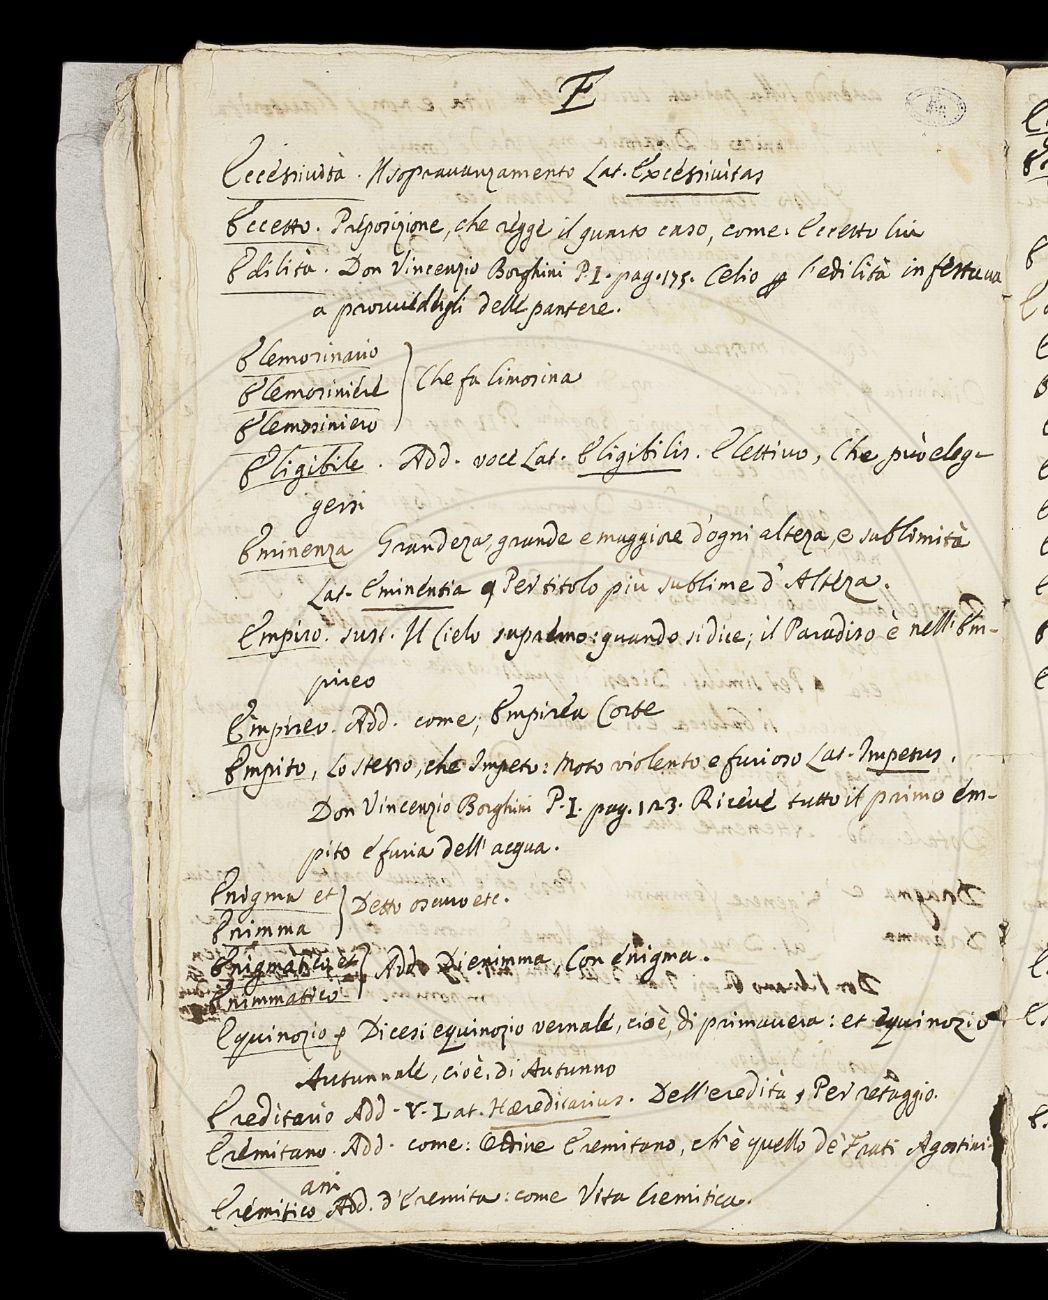 E
Eccessività. Il sopravanzamento Lat. Excessivitas
Eccetto. Preposizione, che regge il quarto caso, come: Eccetto lui
Edilità. Don Vincenzio Borghini P. I. pag. 175. Celio l'edilità instava
a provvedergli delle pantere.
Elemosinario
Elemosiniere } Che fa limosina
Elemosiniero
Eligibile. Add. voce Lat. Eligibilis. Elettivo, Che può eleg-
gersi
Eminenza Grandeza, grande e maggiore d'ogni alteza, e sublimità
Lat. Eminentia Per titolo più sublime d'Alteza.
Empiro. sust. Il Cielo supremo: quando si dice; il Paradiso è nell'Em-
pireo
Empireo. Add. come; Empirea Corte
Empito, Lo stesso, che Impeto: Moto violento e furioso Lat. Impetus.
Don Vincenzio Borghini P. I. pag. 123. Riceve tutto il primo ém-
pito e furia dell'acqua.
Enigma et } Detto oscuro etc.
Enimma
Enigmatico et } Add. D'enimma, Con énigma.
Enimmatico
Equinozio Dicesi equinozio vernale, cioè, di primavera: et equinozio
Autunnale, cioè, di Autunno
Ereditario Add. V. Lat. Hæreditarius. Dell'eredità, Per retaggio.
Eremitano. Add. come: Ordine Eremitano, ch'è quello de' Frati Agostini-
ani
Eremitico Add. d'Eremita: come Vita Eremitica.